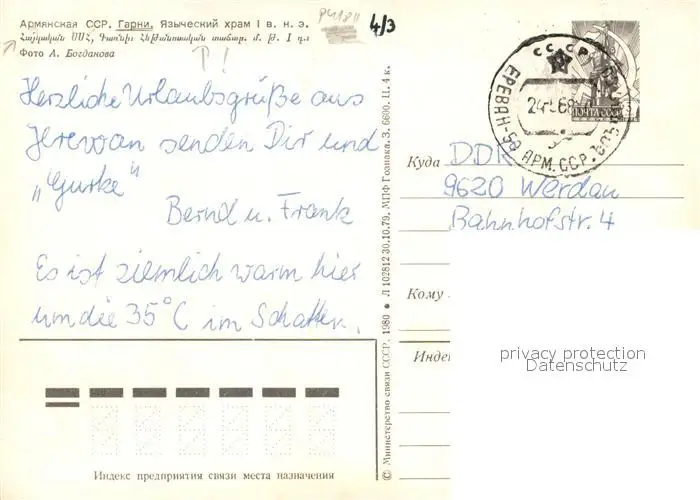 Армянская ССР. Гарни. Языческий храм I в. н. э.
Հայկական ՍՍՀ, Գառնի. Հեթանոսական տաճար. մ. թ. I դ.
Фото А. Богданова
4/3
Herzliche Urlaubsgrüße aus
Jerewan senden Dir und
„Gurke"
Bernd u. Frank
Es ist ziemlich warm hier
um die 35°C im Schatten.
Индекс предприятия связи места назначения
© Министерство связи СССР, 1980 ● Л 102812 30.10.79. МПФ Гознака. З. 6600. Ц. 4 к.
СССР
ЕРЕВАН-59 АРМ.ССР.
ПОЧТА СССР
Куда DDR
9620 Werdau
Bahnhofstr. 4
Кому
Индек
privacy protection
Datenschutz